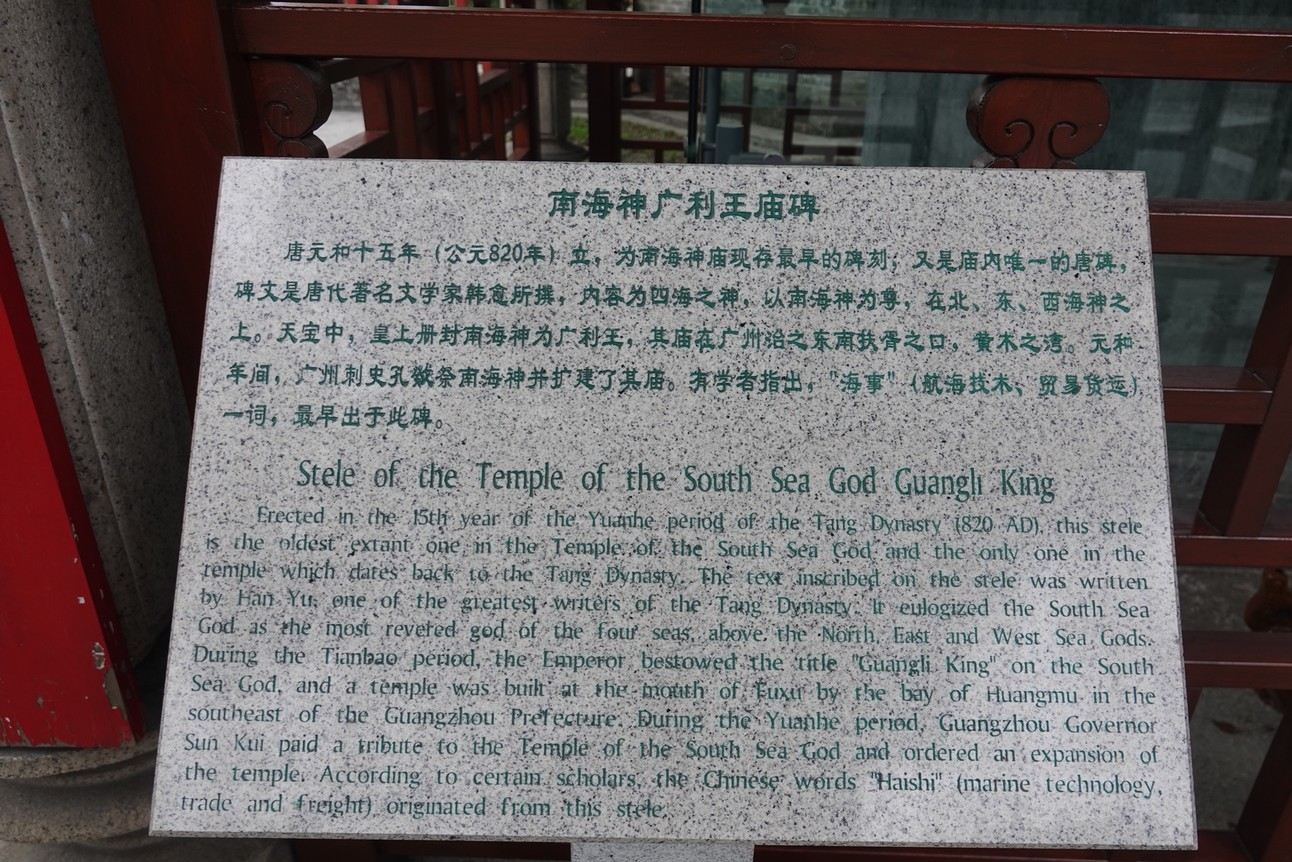 南海神广利王庙碑
唐元和十五年（公元820年）立，为南海神庙现存最早的碑刻；又是庙内唯一的唐碑，
碑文是唐代著名文学家韩愈所撰，内容为四海之神，以南海神为尊，在北、东、西海神之
上。天宝中，皇上册封南海神为广利王，其庙在广州治之东南扶胥之口，黄木之湾。元和
年间，广州刺史孔戣祭南海神并扩建了其庙。有学者指出，"海事"（航海技术、贸易货运）
一词，最早出于此碑。
Stele of the Temple of the South Sea God Guangli King
Erected in the 15th year of the Yuanhe period of the Tang Dynasty (820 AD), this stele
is the oldest extant one in the Temple of the South Sea God and the only one in the
temple which dates back to the Tang Dynasty. The text inscribed on the stele was written
by Han Yu, one of the greatest writers of the Tang Dynasty. It eulogized the South Sea
God as the most revered god of the four seas, above the North, East and West Sea Gods.
During the Tianbao period, the Emperor bestowed the title "Guangli King" on the South
Sea God, and a temple was built at the mouth of Fuxu by the bay of Huangmu in the
southeast of the Guangzhou Prefecture. During the Yuanhe period, Guangzhou Governor
Sun Kui paid a tribute to the Temple of the South Sea God and ordered an expansion of
the temple. According to certain scholars, the Chinese words "Haishi" (marine technology,
trade and freight) originated from this stele.